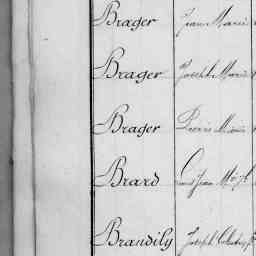 Brager Jean Marie
Brager Joseph Marie
Brager Pierre Marie
Brard Jean
Brandily Joseph